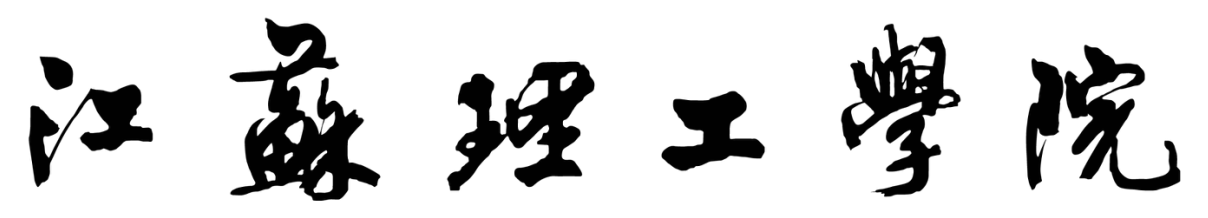 江蘇理工學院